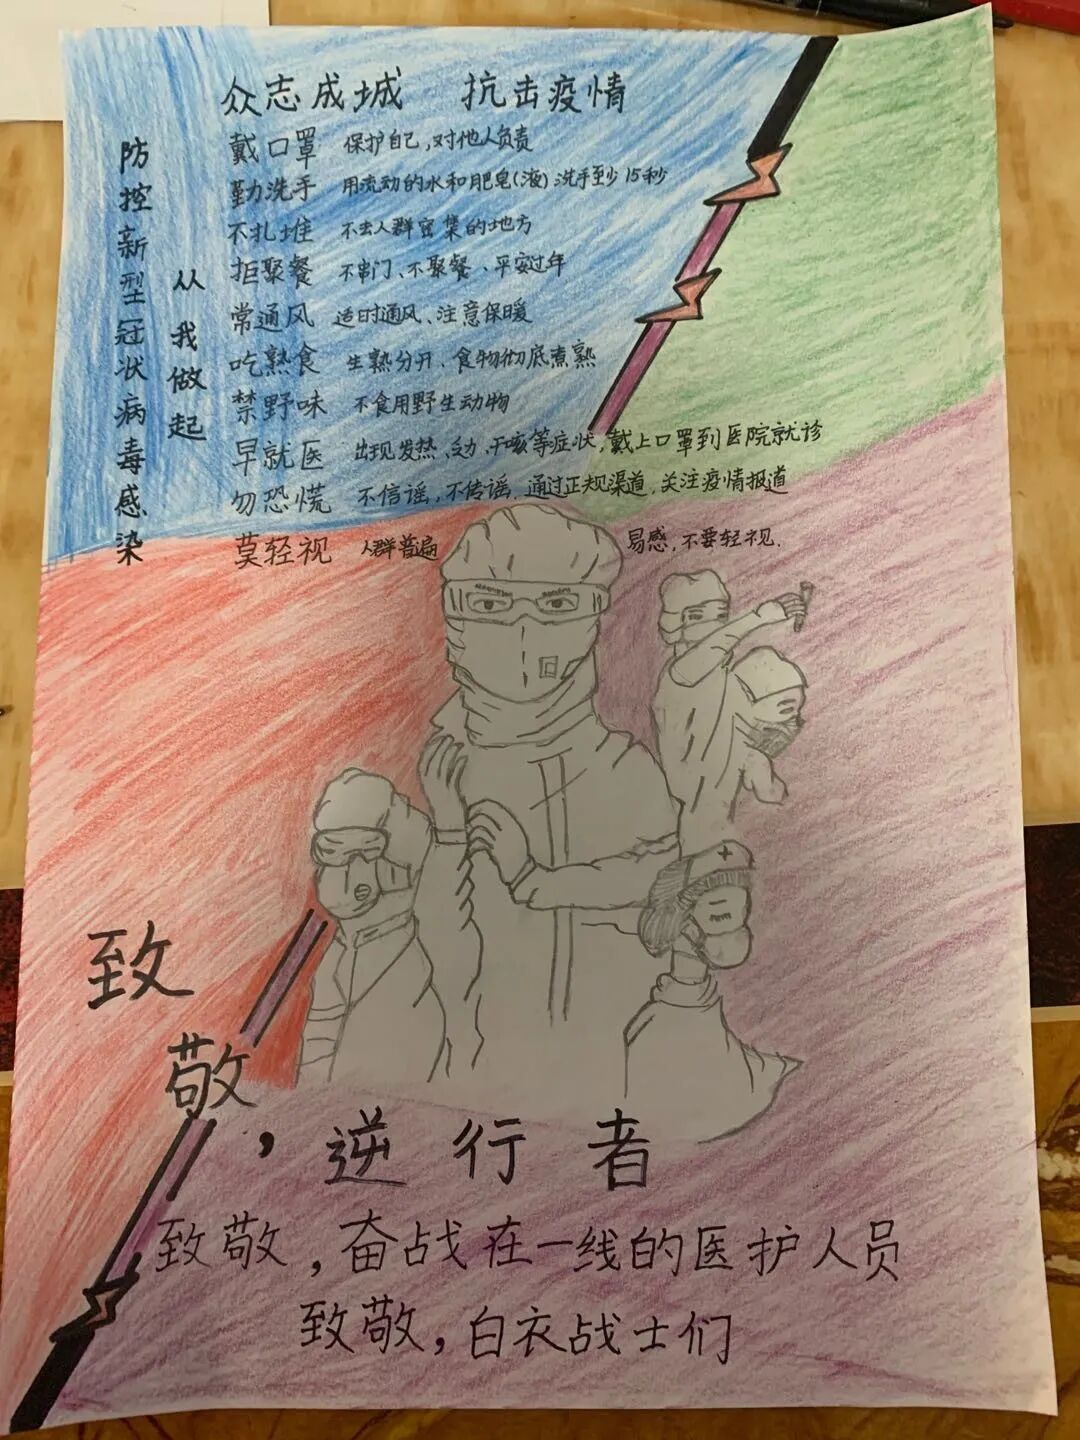 众志成城 抗击疫情
防控新型冠状病毒感染
从我做起
戴口罩 保护自己,对他人负责
勤洗手 用流动的水和肥皂(液)洗手至少15秒
不扎堆 不去人群密集的地方
拒聚餐 不串门、不聚餐、平安过年
常通风 适时通风、注意保暖
吃熟食 生熟分开、食物彻底煮熟
禁野味 不食用野生动物
早就医 出现发热、乏力、干咳等症状,戴上口罩到医院就诊
勿恐慌 不信谣,不传谣,通过正规渠道,关注疫情报道
莫轻视 人群普遍易感,不要轻视.
致敬,逆行者
致敬,奋战在一线的医护人员
致敬,白衣战士们